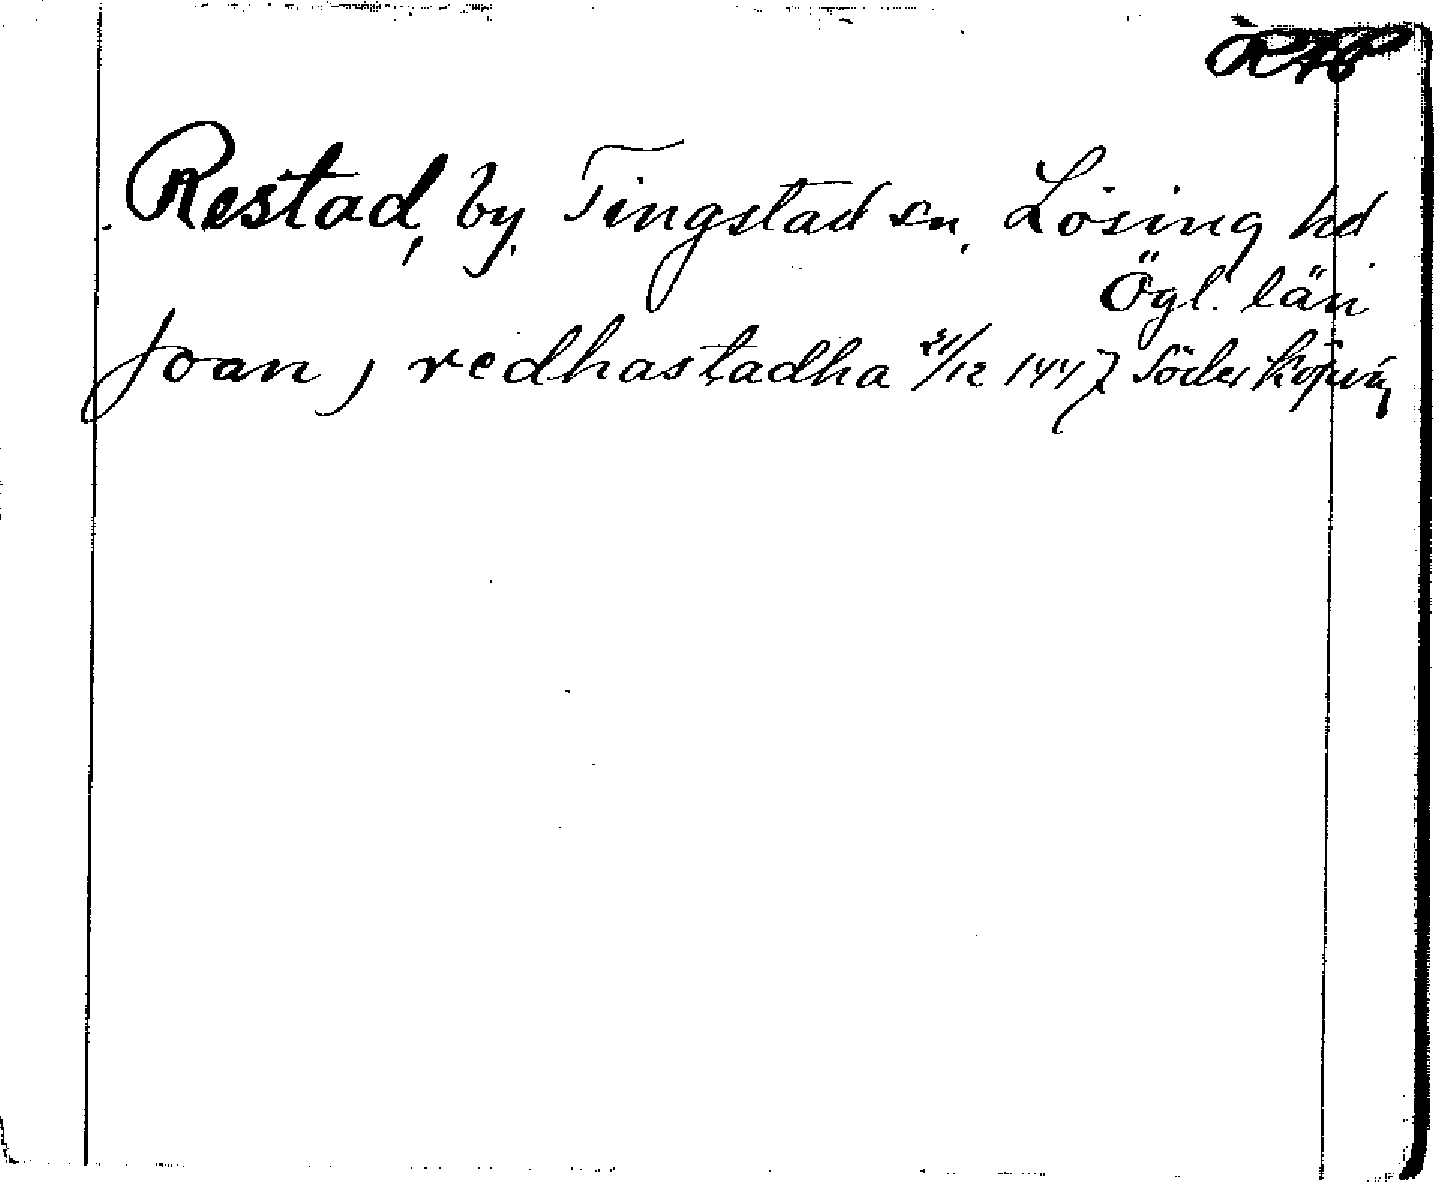 RAP
Restad, by, Tingstad sn, Lösing hd
Ögl. län
Joan j redhastadha 21/12 1447 Söderköping